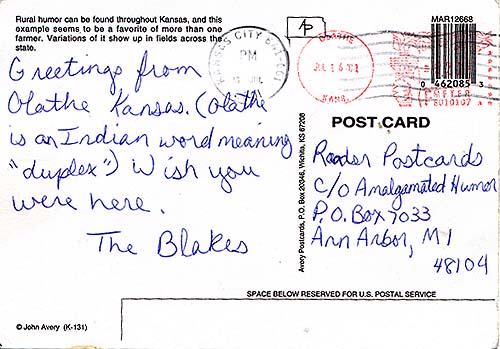 Rural humor can be found throughout Kansas, and this
example seems to be a favorite of more than one
farmer. Variations of it show up in fields across the
state.
Greetings from
Olathe Kansas. (Olathe
is an Indian word meaning
"duplex") Wish you
were here.
The Blakes
© John Avery (K-131)
Avery Postcards, P.O. Box 20346, Wichita, KS 67208
KANSAS CITY
PM
AP
OLATHE
JUL 16 '01
KANS.
MAR12668
0 462085 3
METER
8010107
POST CARD
Reader Postcards
c/o Amalgamated Humor
P.O. Box 7033
Ann Arbor, MI
48104
SPACE BELOW RESERVED FOR U.S. POSTAL SERVICE